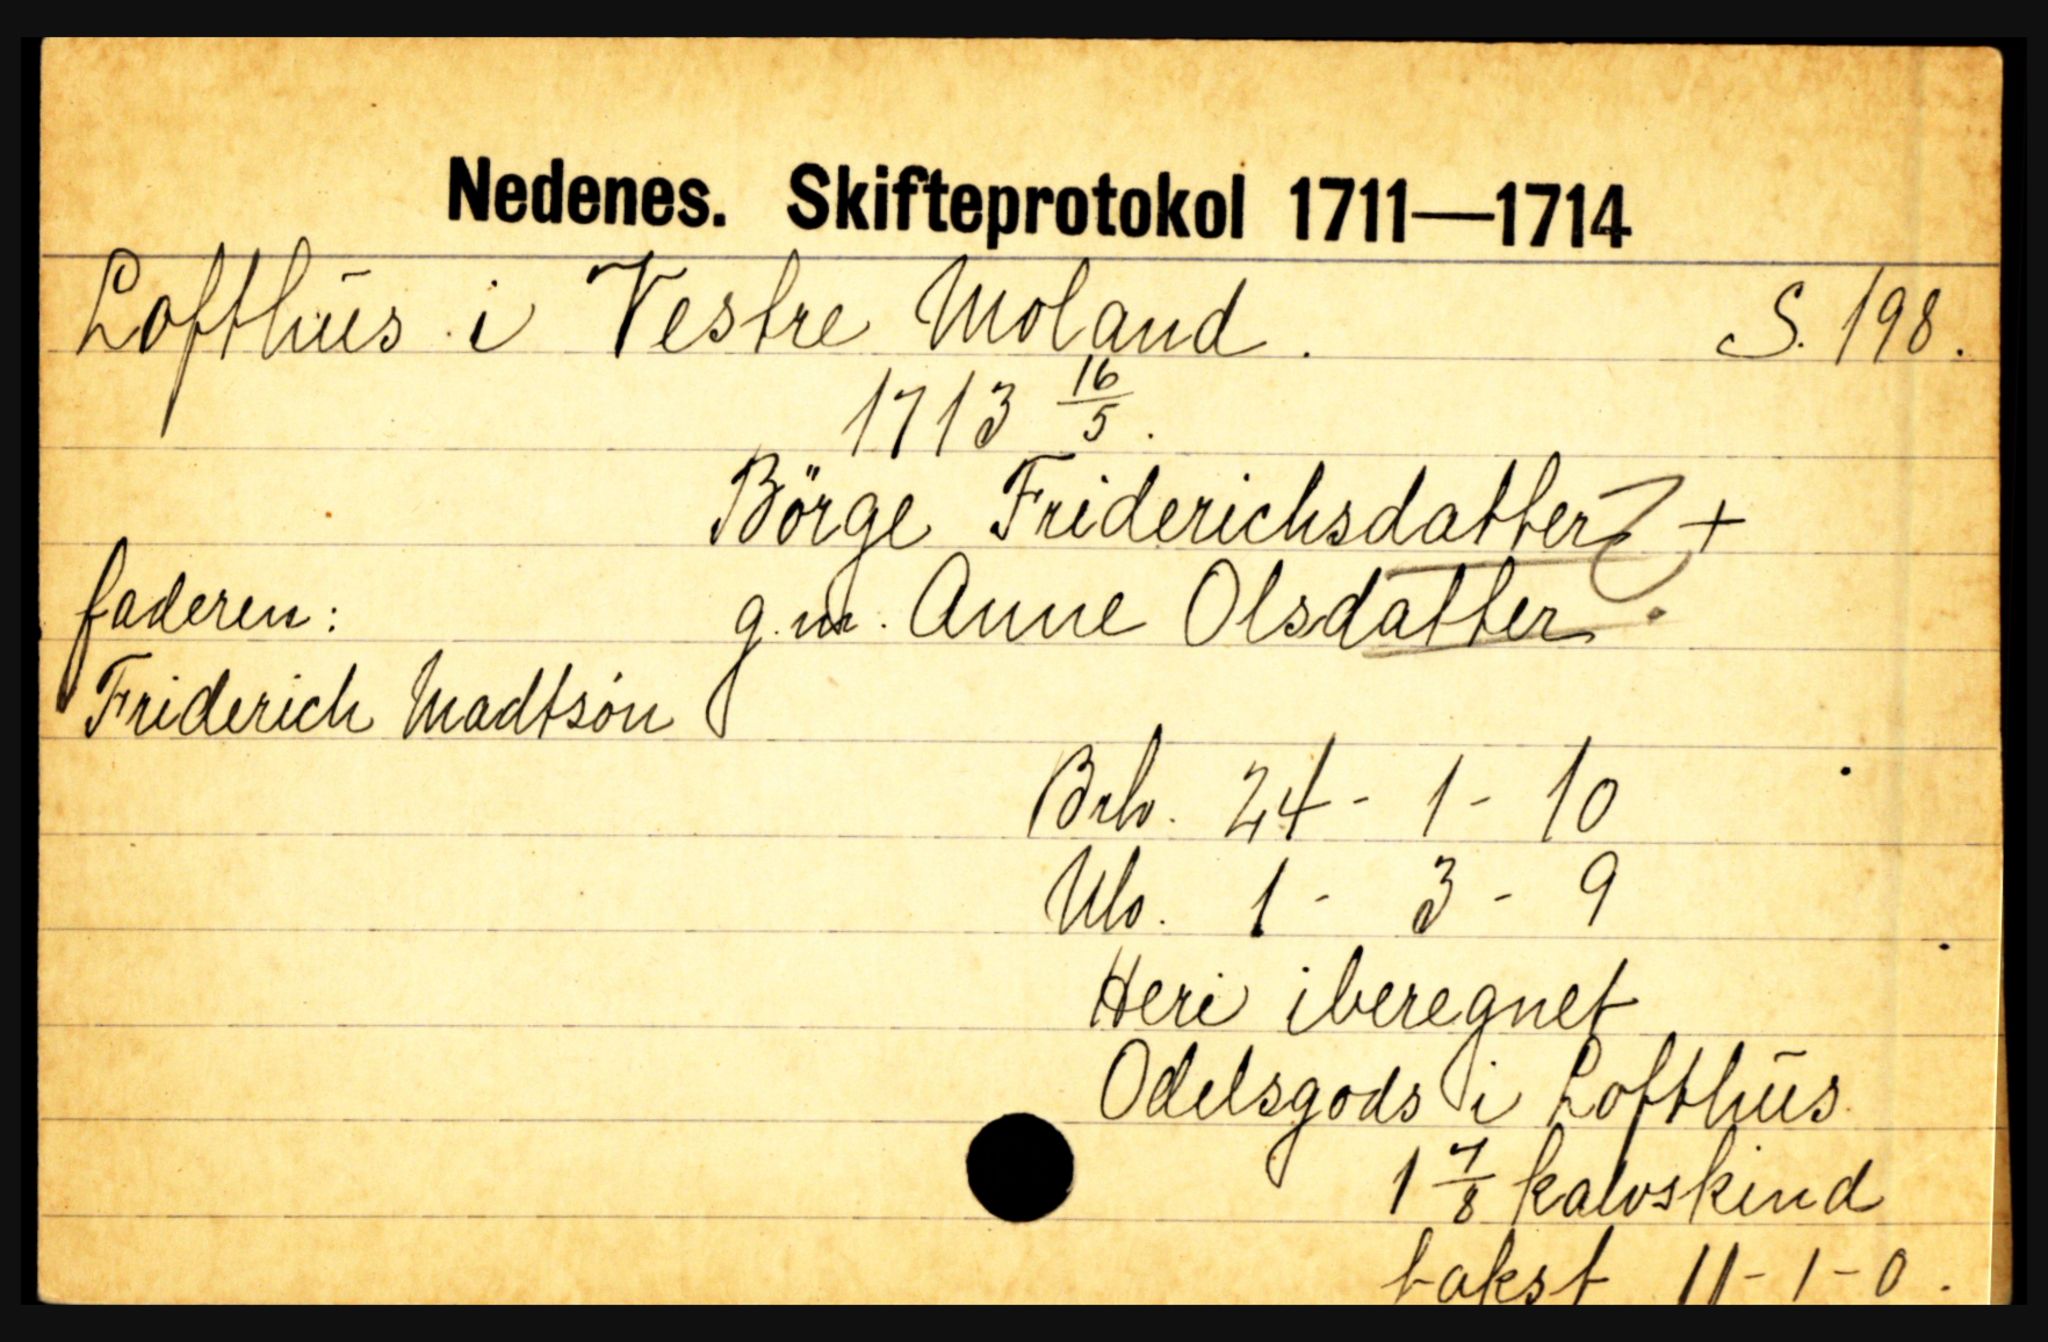 Nedenes. Skifteprotokol 1711—1714
Lofthūs i Vestre Moland. S. 198.
1713 16/5.
Börge Friderichsdatter ? +
faderen: g.m. Anne Olsdatter
Friderich Madtsön
Brb. 24 - 1 - 10
Nlo. 1 - 3 - 9
Heri iberegnet
Odelsgods i Lofthūs
1 7/8 kalvskind
takst 11 - 1 - 0.